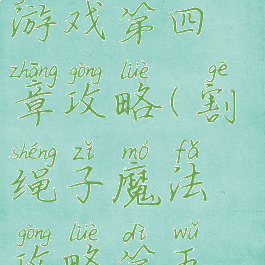 游戏第四
zhāng gōng lüè gē
章攻略(割
shéng zǐ mó fǎ
绳子魔法
gōng lüè dì wǔ
攻略第五